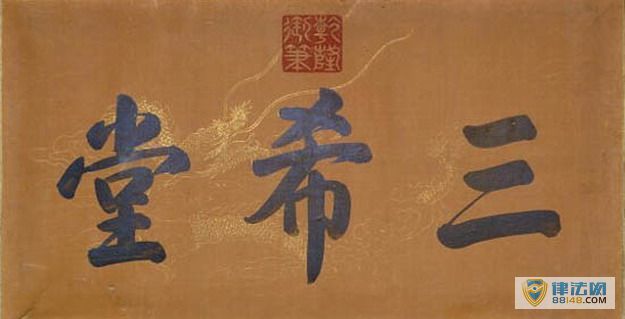 乾隆御筆
三希堂
律法网
88148.com